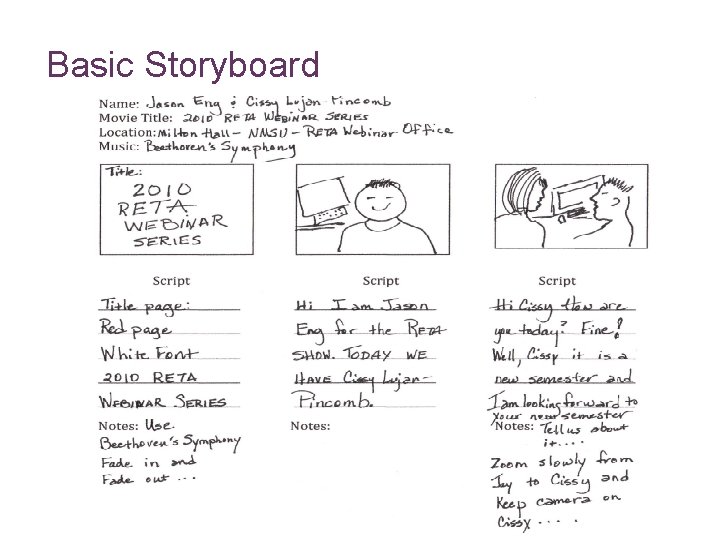 Basic Storyboard
Name: Jason Eng & Cissy Lujan Pincomb
Movie Title: 2010 RETA WEBINAR SERIES
Location: Milton Hall - NMSU - RETA Webinar Office
Music: Beethoven's Symphony
Title:
2010
RETA
WEBINAR
SERIES
Script
Title page:
Red page
White Font
2010 RETA
WEBINAR SERIES
Notes: Use
Beethoven's Symphony
Fade in and
Fade out ...
Script
Hi I am Jason
Eng for the RETA
SHOW. TODAY WE
HAVE Cissy Lujan-
Pincomb.
Notes:
Script
Hi Cissy How are
you today? Fine!
Well, Cissy it is a
new semester and
I am looking forward to
your new semester
Notes: Tell us about
it....
Zoom slowly from
Jay to Cissy and
Keep camera on
Cissy ....